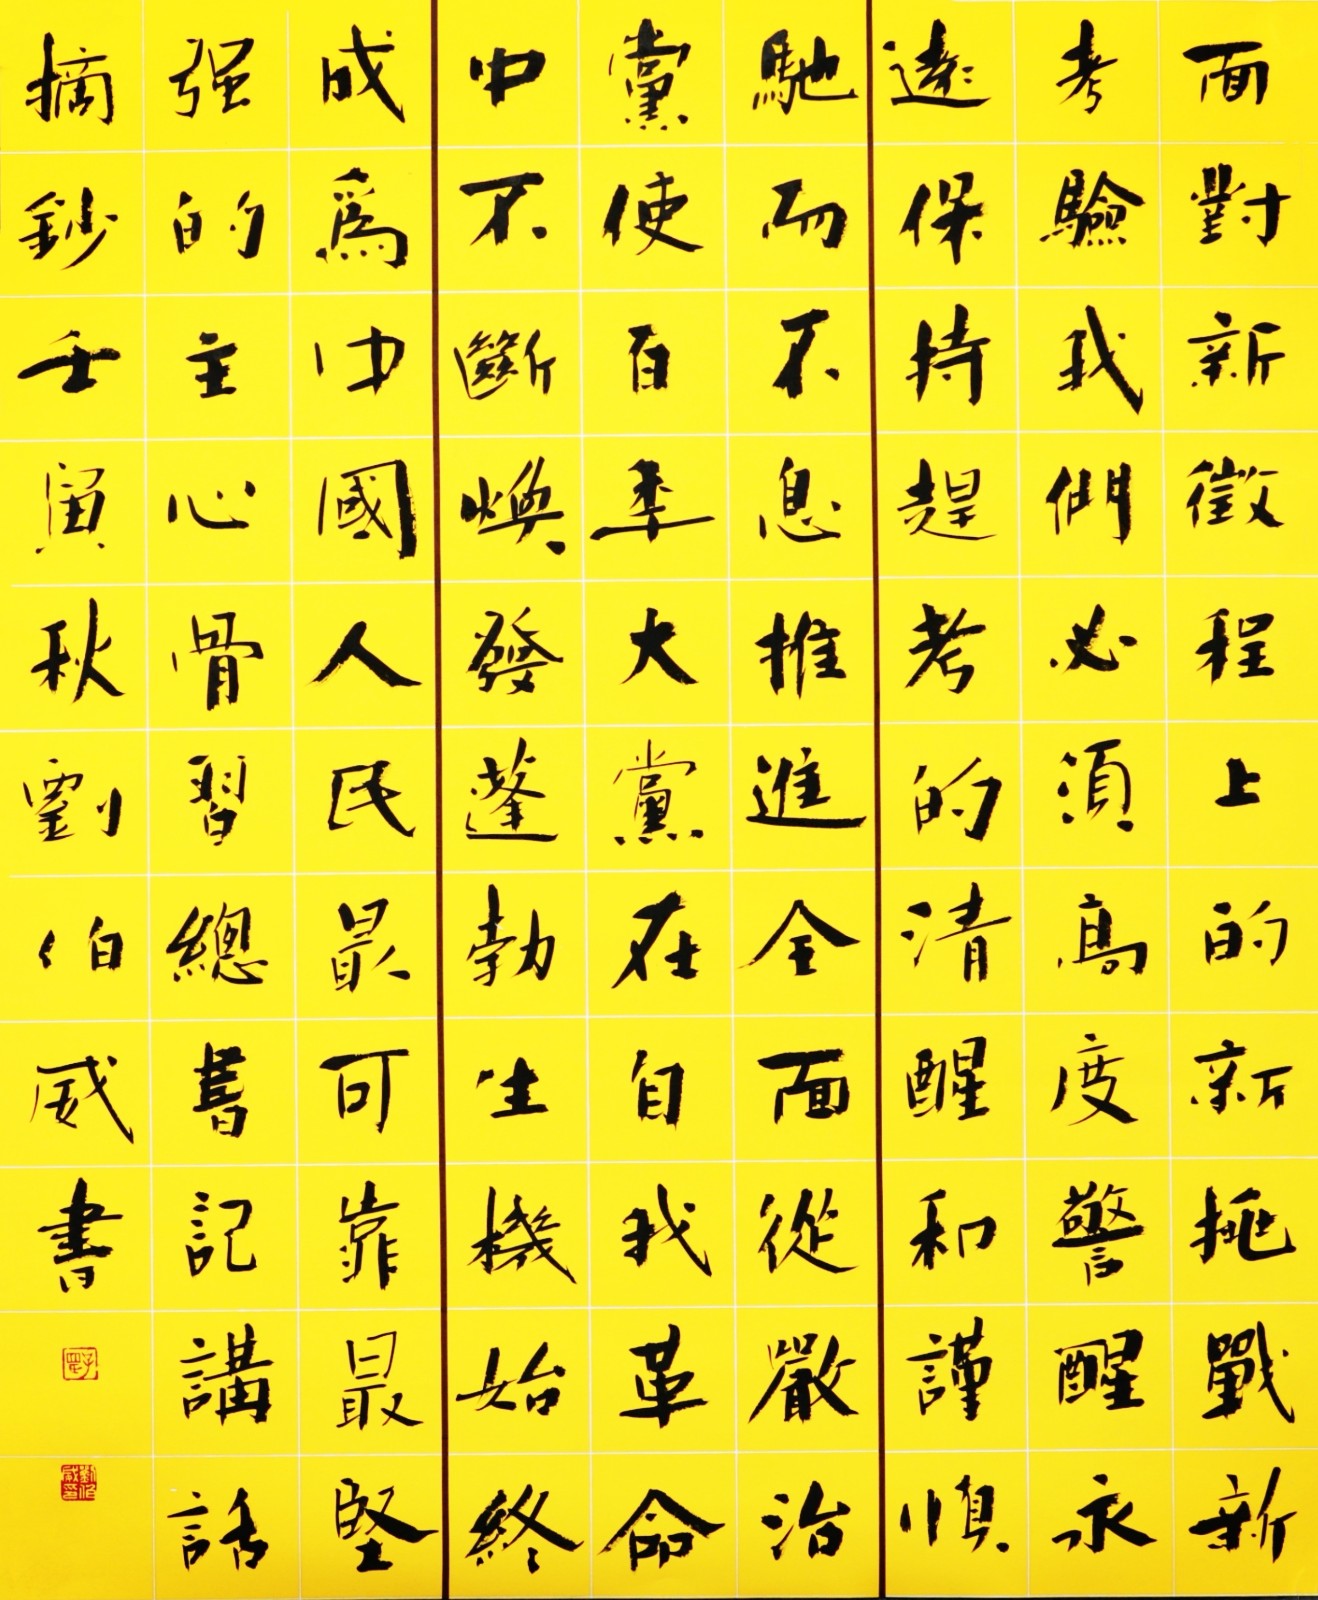 面對新徵程上的新挑戰新
考驗我們必須高度警醒永
遠保持趕考的清醒和謹慎
馳而不息推進全面從嚴治
黨使百年大黨在自我革命
中不斷煥發蓬勃生機始終
成為中國人民最可靠最堅
强的主心骨習總書記講話
摘鈔壬寅秋劉伯威書
劉伯威印